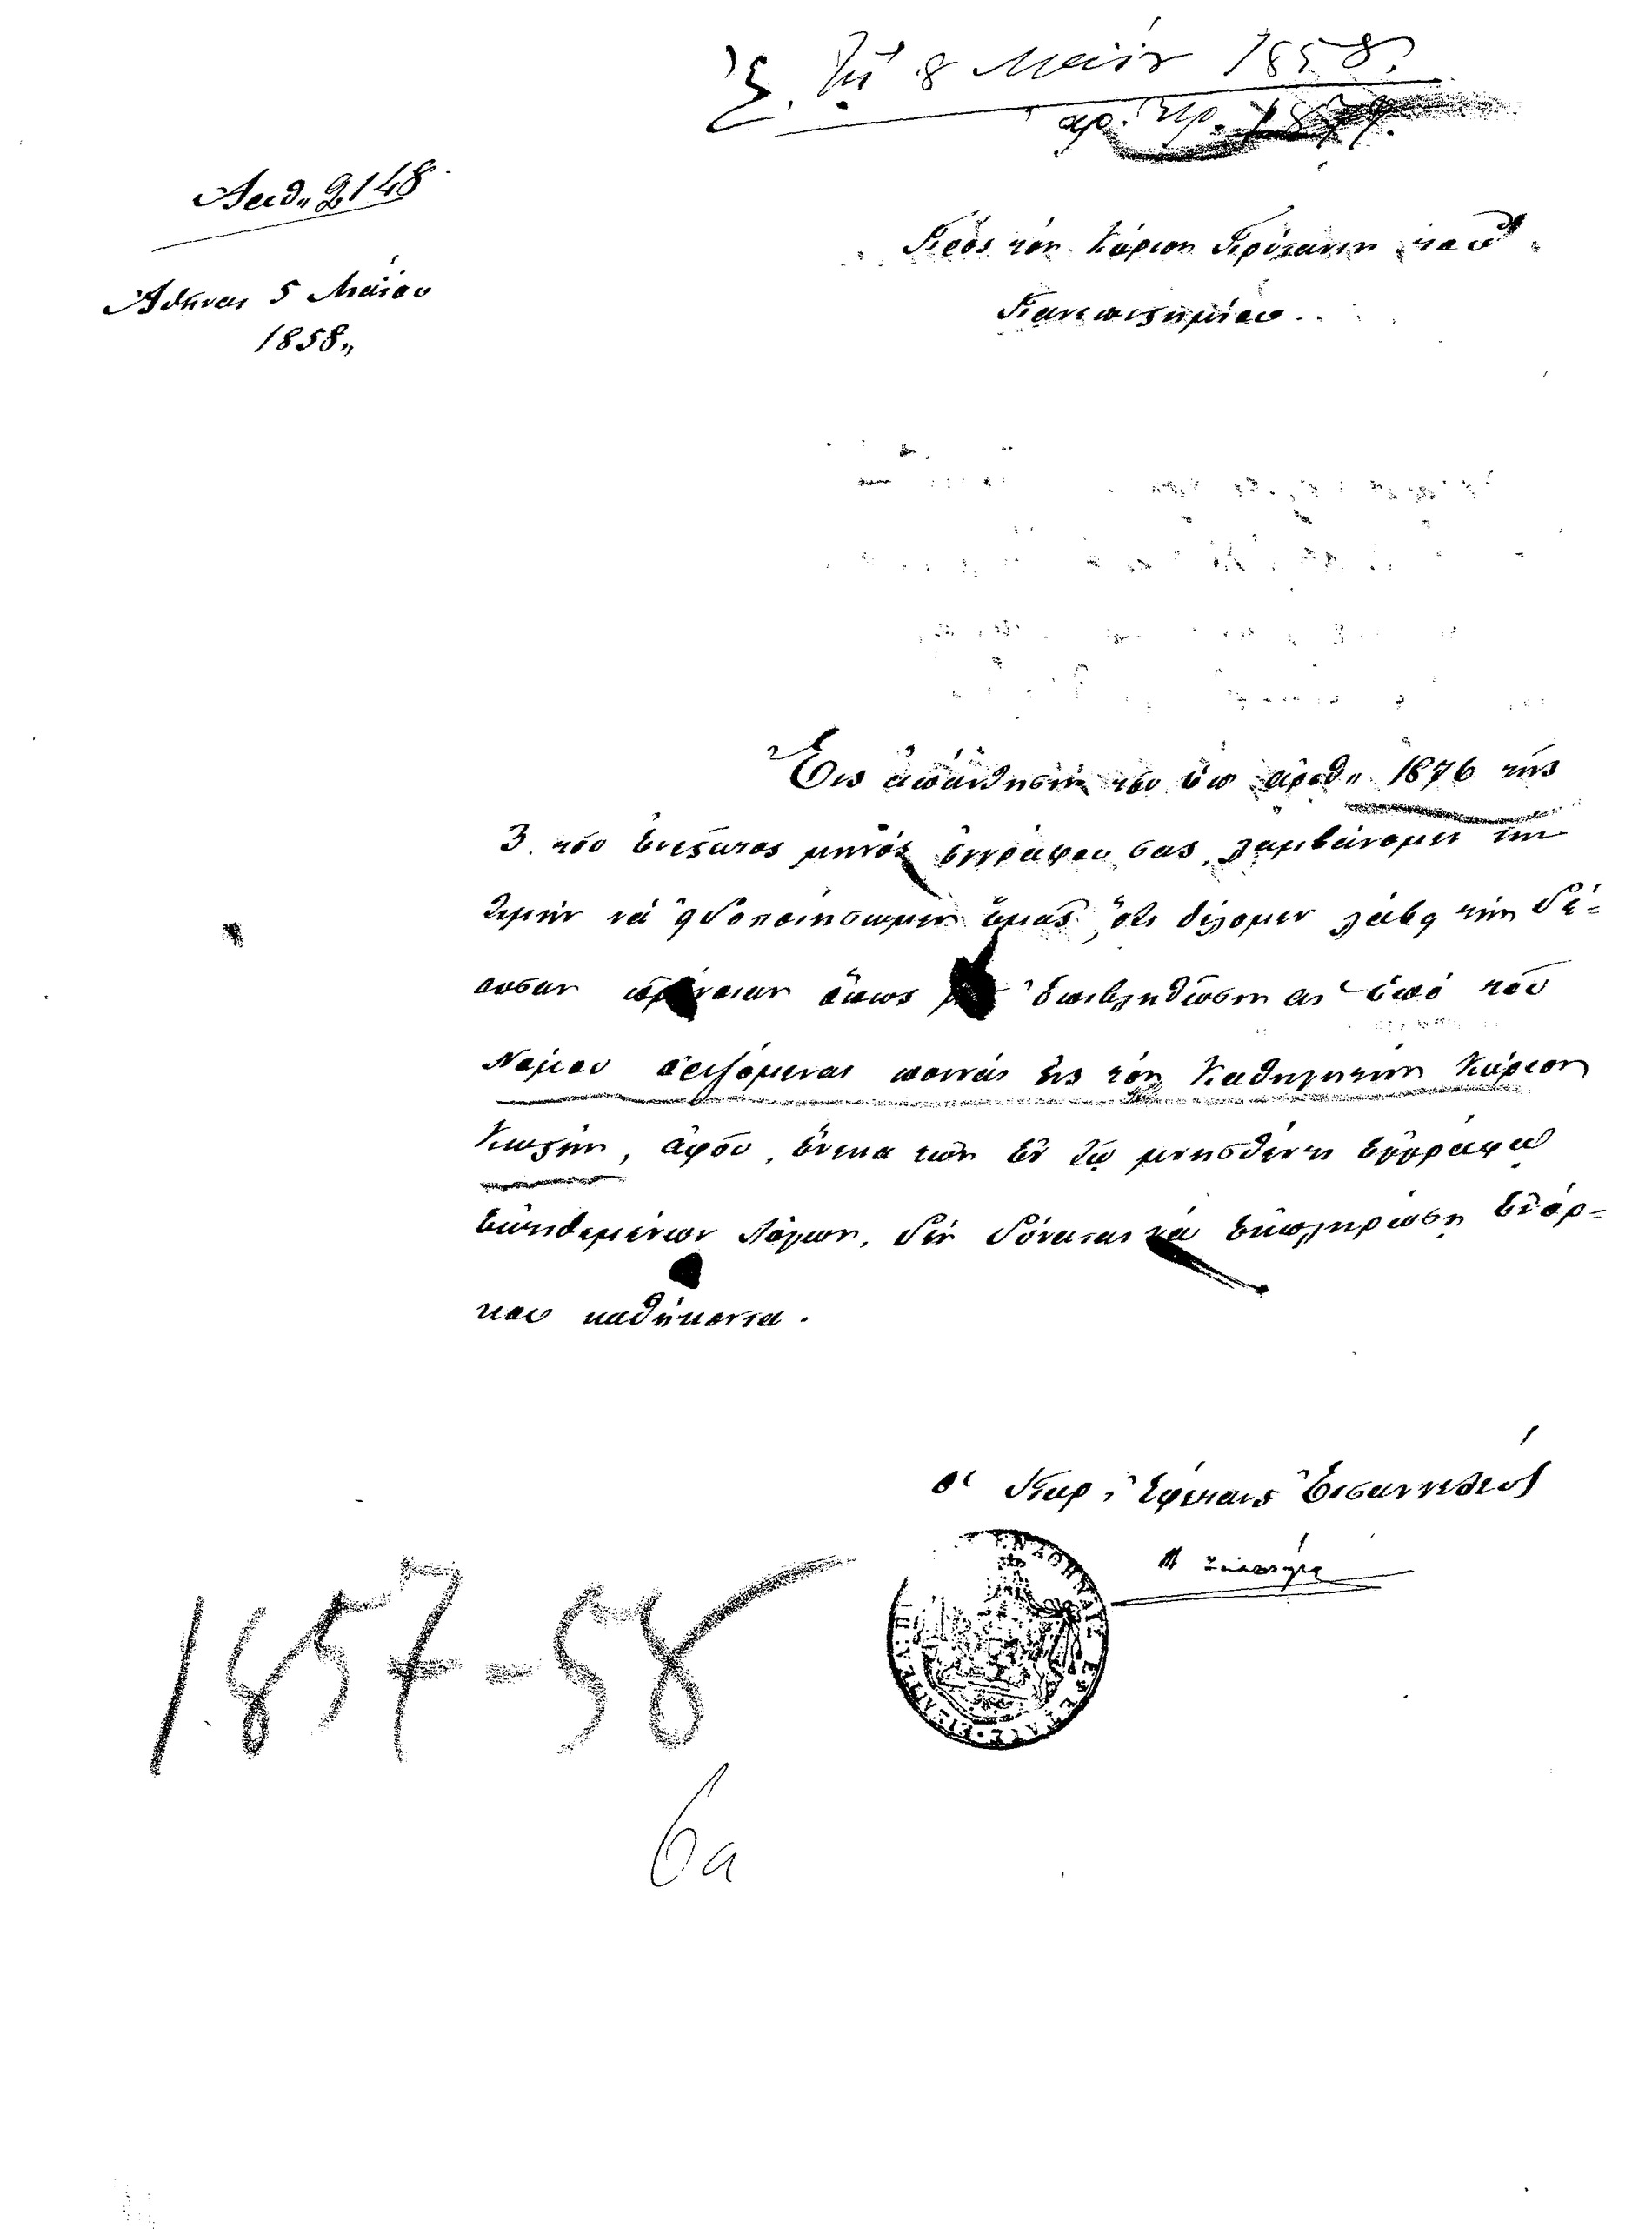 Σ. τῇ 8 Μαΐου 1858.
ἀρ. πρ. 1879.
Ἀριθ. 2148
Ἀθῆναι 5 Μαΐου
1858„
Πρὸς τὸν Κύριον Πρύτανιν τοῦ
Πανεπιστημίου.
Εἰς ἀπάντησιν τοῦ ὑπ' ἀριθ„ 1876 τῆς
3 τοῦ ἐνεστῶτος μηνὸς ἐγγράφου σας, λαμβάνομεν τὴν
τιμὴν νὰ εἰδοποιήσωμεν ὑμᾶς, ὅτι θέλομεν λάβῃ τὴν δέ=
ουσαν πρόνοιαν ὅπως μὴ ἐπιβληθῶσιν αἱ ὑπὸ τοῦ
Νόμου ὁριζόμεναι ποιναὶ εἰς τὸν Καθηγητὴν Κύριον
Κωστῆν, ἀφοῦ, ἕνεκα τῶν ἐν τῷ μνησθέντι ἐγγράφῳ
ἐκτιθεμένων λόγων, δὲν δύναται νὰ ἐκπληρώσῃ ἐνόρ=
κου καθήκοντα.
Ὁ Παρ' Ἐφέταις Εἰσαγγελεὺς
ΕΝ ΑΘΗΝΑΙΣ ΕΦΕΤΑΙΣ
1857-58
6a